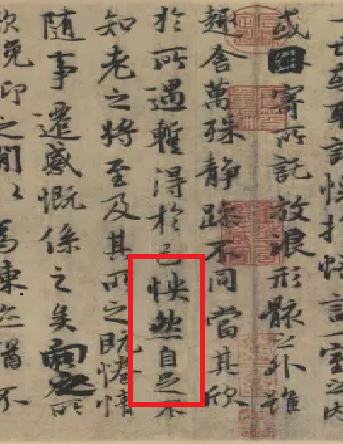 一世或取諸懷抱悟言一室之内
或因寄所託放浪形骸之外雖
趣舍萬殊静躁不同當其欣
於所遇暫得於己怏然自足不
知老之將至及其所之既惓情
隨事遷感慨係之矣向之所
欣俛仰之閒以爲陳迹猶不